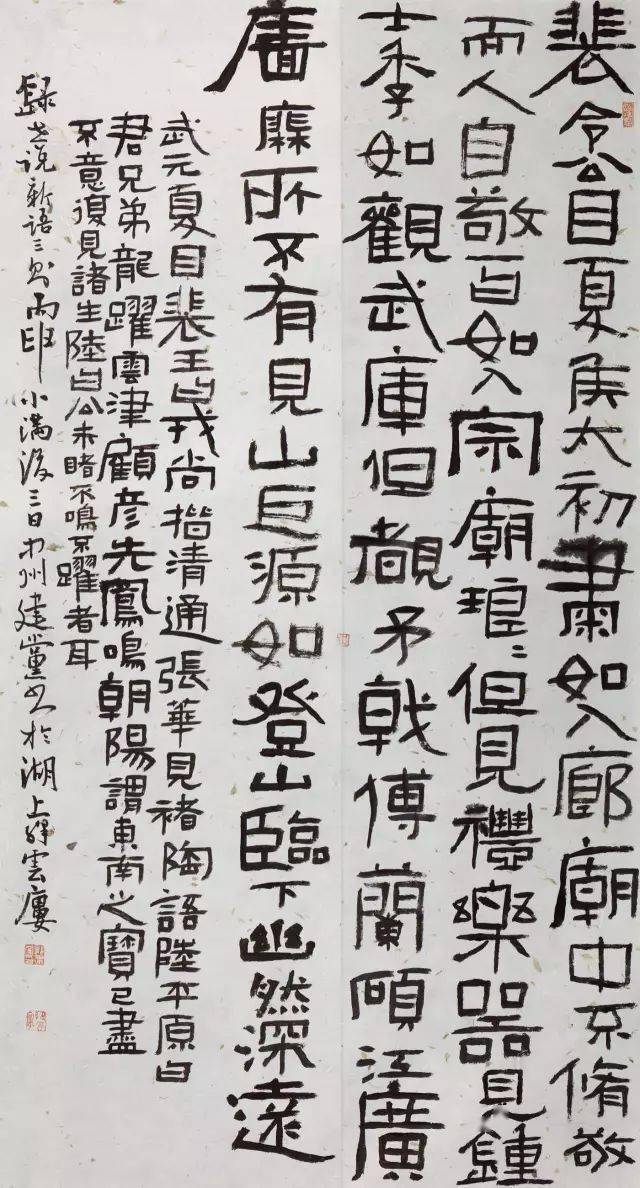 裴令公目夏侯太初肅如入廊廟中不脩敬
而人自敬一曰如入宗廟琅〻但見禮樂器見鍾
士季如觀武庫但覩矛戟傅蘭碩江廣
廧靡所不有見山巨源如登山臨下幽然深遠
武元夏目裴王曰戎尚楷清通張華見褚陶語陸平原曰
君兄弟龍躍雲津顧彦先鳳鳴朝陽謂東南之寶已盡
不意復見諸生陸曰公未睹不鳴不躍者耳
録世说新語三則丙申小滿後三日中州建黨書於湖上繹雲廔